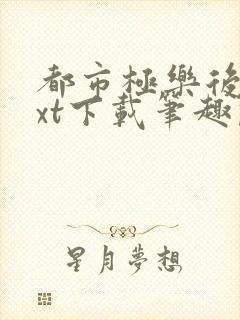 都市極樂後
xt下載筆趣
星月夢想